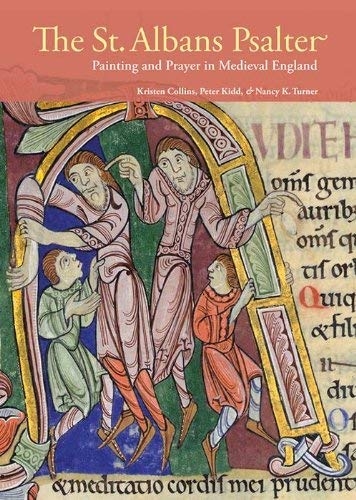 The St. Albans Psalter
Painting and Prayer in Medieval England
Kristen Collins, Peter Kidd, & Nancy K. Turner
UDITE
om̄s gen
aurib
om̄s q
tis or
Quiq
&fil
&meditatio cordis mei prudent